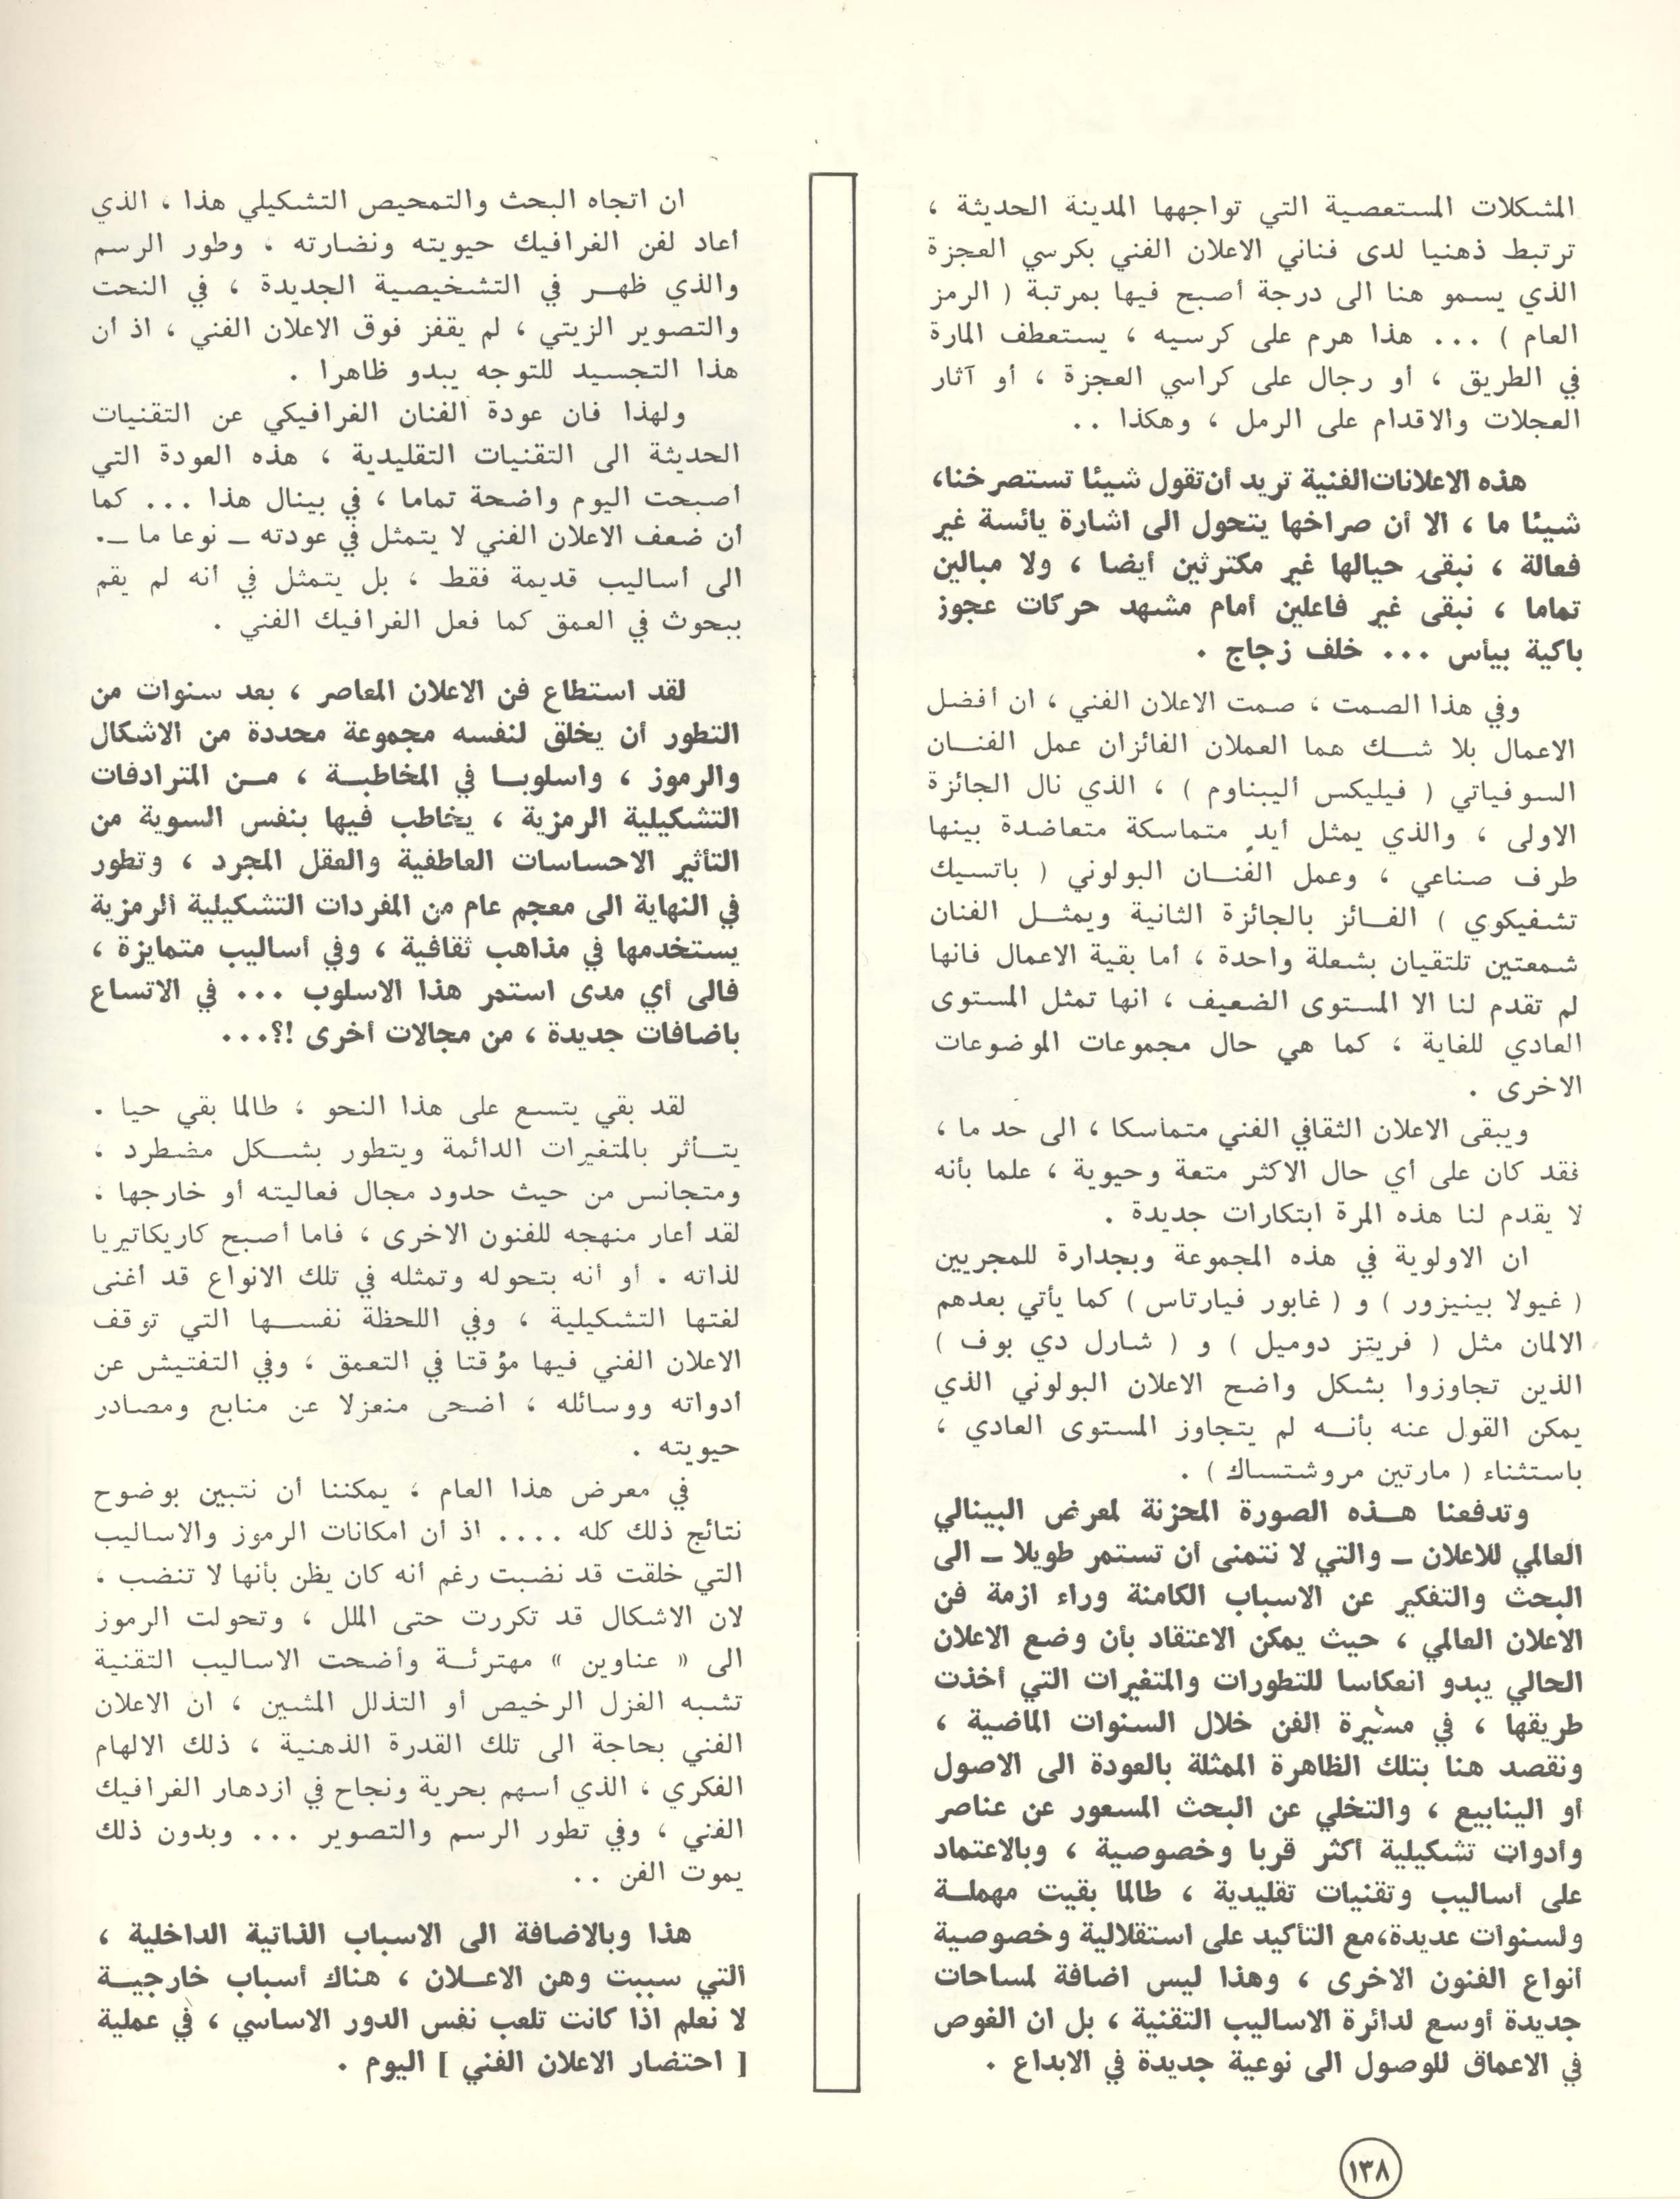 المشكلات المستعصية التي تواجهها المدينة الحديثة ،
ترتبط ذهنيا لدى فناني الاعلان الفني بكرسي العجزة
الذي يسمو هنا الى درجة أصبح فيها بمرتبة ( الرمز
العام ) ... هذا هرم على كرسيه ، يستعطف المارة
في الطريق ، أو رجال على كراسي العجزة ، أو آثار
العجلات والاقدام على الرمل ، وهكذا ..
هذه الاعلانات الفنية تريد أن تقول شيئا تستصرخنا،
شيئا ما ، الا أن صراخها يتحول الى اشارة يائسة غير
فعالة ، نبقى حيالها غير مكترثين أيضا ، ولا مبالين
تماما ، نبقى غير فاعلين أمام مشهد حركات عجوز
باكية بيأس ... خلف زجاج .
وفي هذا الصمت ، صمت الاعلان الفني ، ان أفضل
الاعمال بلا شك هما العملان الفائزان عمل الفنان
السوفياتي ( فيليكس أليبناوم ) ، الذي نال الجائزة
الاولى ، والذي يمثل أيدٍ متماسكة متعاضدة بينها
طرف صناعي ، وعمل الفنان البولوني ( باتسيك
تشفيكوي ) الفائز بالجائزة الثانية ويمثل الفنان
شمعتين تلتقيان بشعلة واحدة ، أما بقية الاعمال فانها
لم تقدم لنا الا المستوى الضعيف ، انها تمثل المستوى
العادي للغاية ، كما هي حال مجموعات الموضوعات
الاخرى .
ويبقى الاعلان الثقافي الفني متماسكا ، الى حد ما ،
فقد كان على أي حال الاكثر متعة وحيوية ، علما بأنه
لا يقدم لنا هذه المرة ابتكارات جديدة .
ان الاولوية في هذه المجموعة وبجدارة للمجريين
( غيولا بينيزور ) و ( غابور فيارتاس ) كما يأتي بعدهم
الالمان مثل ( فريتز دوميل ) و ( شارل دي بوف )
الذين تجاوزوا بشكل واضح الاعلان البولوني الذي
يمكن القول عنه بأنه لم يتجاوز المستوى العادي ،
باستثناء ( مارتين مروشتساك ) .
وتدفعنا هذه الصورة المحزنة لمعرض البينالي
العالمي للاعلان ـ والتي لا نتمنى أن تستمر طويلا ـ الى
البحث والتفكير عن الاسباب الكامنة وراء ازمة فن
الاعلان العالمي ، حيث يمكن الاعتقاد بأن وضع الاعلان
الحالي يبدو انعكاسا للتطورات والمتغيرات التي أخذت
طريقها ، في مسيرة الفن خلال السنوات الماضية ،
ونقصد هنا بتلك الظاهرة الممثلة بالعودة الى الاصول
أو الينابيع ، والتخلي عن البحث المسعور عن عناصر
وأدوات تشكيلية أكثر قربا وخصوصية ، وبالاعتماد
على أساليب وتقنيات تقليدية ، طالما بقيت مهملة
ولسنوات عديدة،مع التأكيد على استقلالية وخصوصية
أنواع الفنون الاخرى ، وهذا ليس اضافة لمساحات
جديدة أوسع لدائرة الاساليب التقنية ، بل ان الغوص
في الاعماق للوصول الى نوعية جديدة في الابداع .
ان اتجاه البحث والتمحيص التشكيلي هذا ، الذي
أعاد لفن الغرافيك حيويته ونضارته ، وطور الرسم
والذي ظهر في التشخيصية الجديدة ، في النحت
والتصوير الزيتي ، لم يقفز فوق الاعلان الفني ، اذ أن
هذا التجسيد للتوجه يبدو ظاهرا .
ولهذا فان عودة الفنان الغرافيكي عن التقنيات
الحديثة الى التقنيات التقليدية ، هذه العودة التي
أصبحت اليوم واضحة تماما ، في بينال هذا ... كما
أن ضعف الاعلان الفني لا يتمثل في عودته ـ نوعا ما ـ.
الى أساليب قديمة فقط ، بل يتمثل في أنه لم يقم
ببحوث في العمق كما فعل الغرافيك الفني .
لقد استطاع فن الاعلان المعاصر ، بعد سنوات من
التطور أن يخلق لنفسه مجموعة محددة من الاشكال
والرموز ، واسلوبا في المخاطبة ، من المترادفات
التشكيلية الرمزية ، يخاطب فيها بنفس السوية من
التأثير الاحساسات العاطفية والعقل المجرد ، وتطور
في النهاية الى معجم عام من المفردات التشكيلية الرمزية
يستخدمها في مذاهب ثقافية ، وفي أساليب متمايزة ،
فالى أي مدى استمر هذا الاسلوب ... في الاتساع
باضافات جديدة ، من مجالات أخرى !؟...
لقد بقي يتسع على هذا النحو ، طالما بقي حيا .
يتأثر بالمتغيرات الدائمة ويتطور بشكل مضطرد ،
ومتجانس من حيث حدود مجال فعاليته أو خارجها .
لقد أعار منهجه للفنون الاخرى ، فاما أصبح كاريكاتيريا
لذاته . أو أنه بتحوله وتمثله في تلك الانواع قد أغنى
لغتها التشكيلية ، وفي اللحظة نفسها التي توقف
الاعلان الفني فيها مؤقتا في التعمق ، وفي التفتيش عن
أدواته ووسائله ، اضحى منعزلا عن منابع ومصادر
حيويته .
في معرض هذا العام ، يمكننا أن نتبين بوضوح
نتائج ذلك كله .... اذ أن امكانات الرموز والاساليب
التي خلقت قد نضبت رغم أنه كان يظن بأنها لا تنضب ،
لان الاشكال قد تكررت حتى الملل ، وتحولت الرموز
الى « عناوين » مهترئة وأضحت الاساليب التقنية
تشبه الغزل الرخيص أو التذلل المشين ، ان الاعلان
الفني بحاجة الى تلك القدرة الذهنية ، ذلك الالهام
الفكري ، الذي أسهم بحرية ونجاح في ازدهار الغرافيك
الفني ، وفي تطور الرسم والتصوير ... وبدون ذلك
يموت الفن ..
هذا وبالاضافة الى الاسباب الذاتية الداخلية ،
التي سببت وهن الاعلان ، هناك أسباب خارجية
لا نعلم اذا كانت تلعب نفس الدور الاساسي ، في عملية
[ احتضار الاعلان الفني ] اليوم .
١٣٨